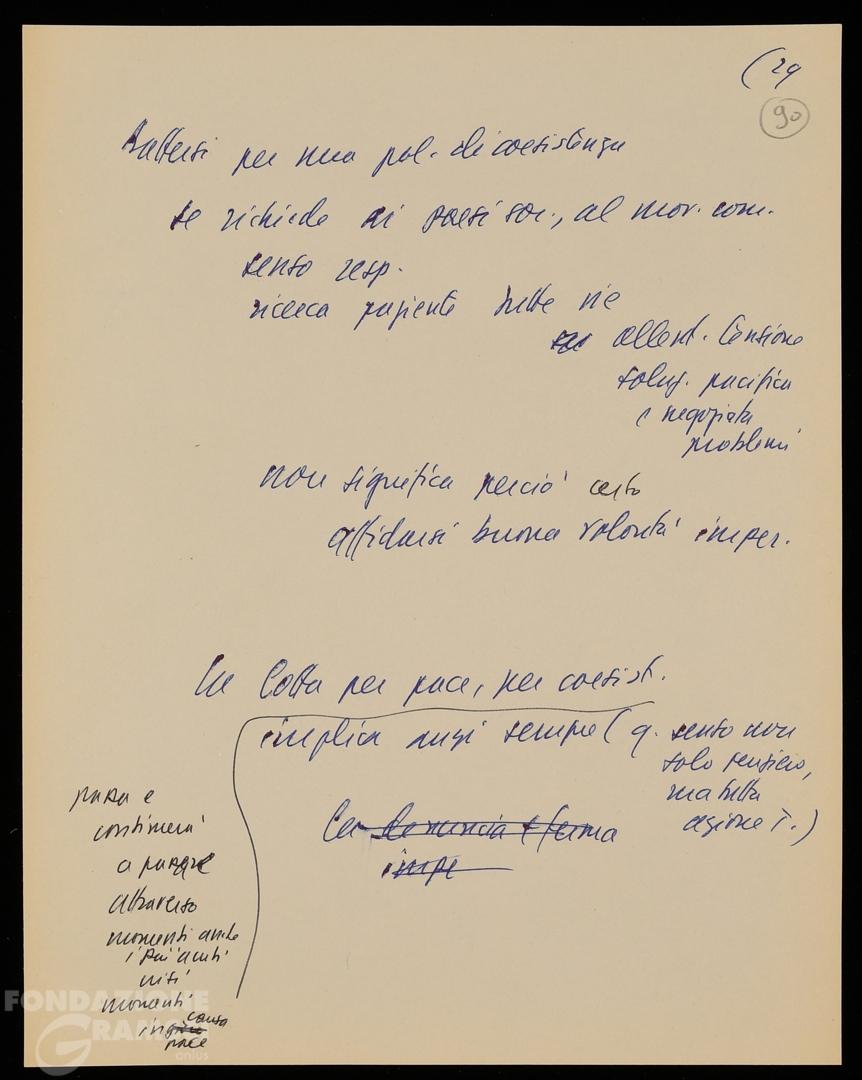 (29
90
Battersi per una pol. di coesistenza
se richiede ai paesi soc., al mov. com.
senso resp.
ricerca paziente tutte vie
allent. tensione
soluz. pacifica
e negoziata
problemi
non significa perciò certo
affidarsi buona volontà imper.
La lotta per pace, per coesist.
implica anzi sempre (q. senso non
solo pensiero,
ma tutta
azione T.)
la denuncia e ferma
impe
passa e
continuerà
a passare
attraverso
momenti anche
i più acuti
momenti
causa
pace
FONDAZIONE
GRAMSCI
onlus